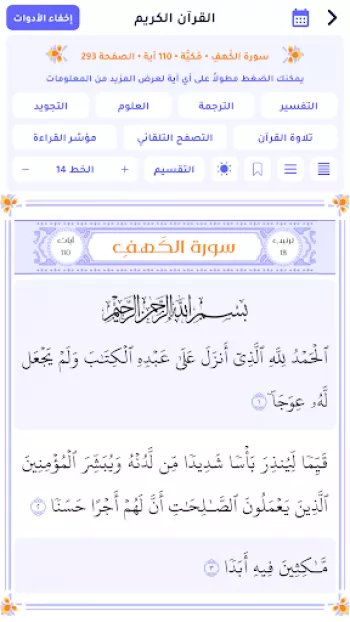 القرآن الكريم
إخفاء الأدوات
سورة الكهف • مَكيَّة • 110 آية • الصفحة 293
يمكنك الضغط مطولاً على أي آية لعرض المزيد من المعلومات
التفسير الترجمة العلوم التجويد
تلاوة القرآن التصفح التلقائي مؤشر القراءة
التقسيم + الخط 14 −
ترتيب 18 سورة الكَهفِ آيات 110
بِسْمِ اللَّهِ الرَّحْمَٰنِ الرَّحِيمِ
ٱلْحَمْدُ لِلَّهِ ٱلَّذِىٓ أَنزَلَ عَلَىٰ عَبْدِهِ ٱلْكِتَٰبَ وَلَمْ يَجْعَل
لَّهُۥ عِوَجَاۜ ١
قَيِّمًا لِّيُنذِرَ بَأْسًا شَدِيدًا مِّن لَّدُنْهُ وَيُبَشِّرَ ٱلْمُؤْمِنِينَ
ٱلَّذِينَ يَعْمَلُونَ ٱلصَّٰلِحَٰتِ أَنَّ لَهُمْ أَجْرًا حَسَنًا ٢
مَّٰكِثِينَ فِيهِ أَبَدًا ٣